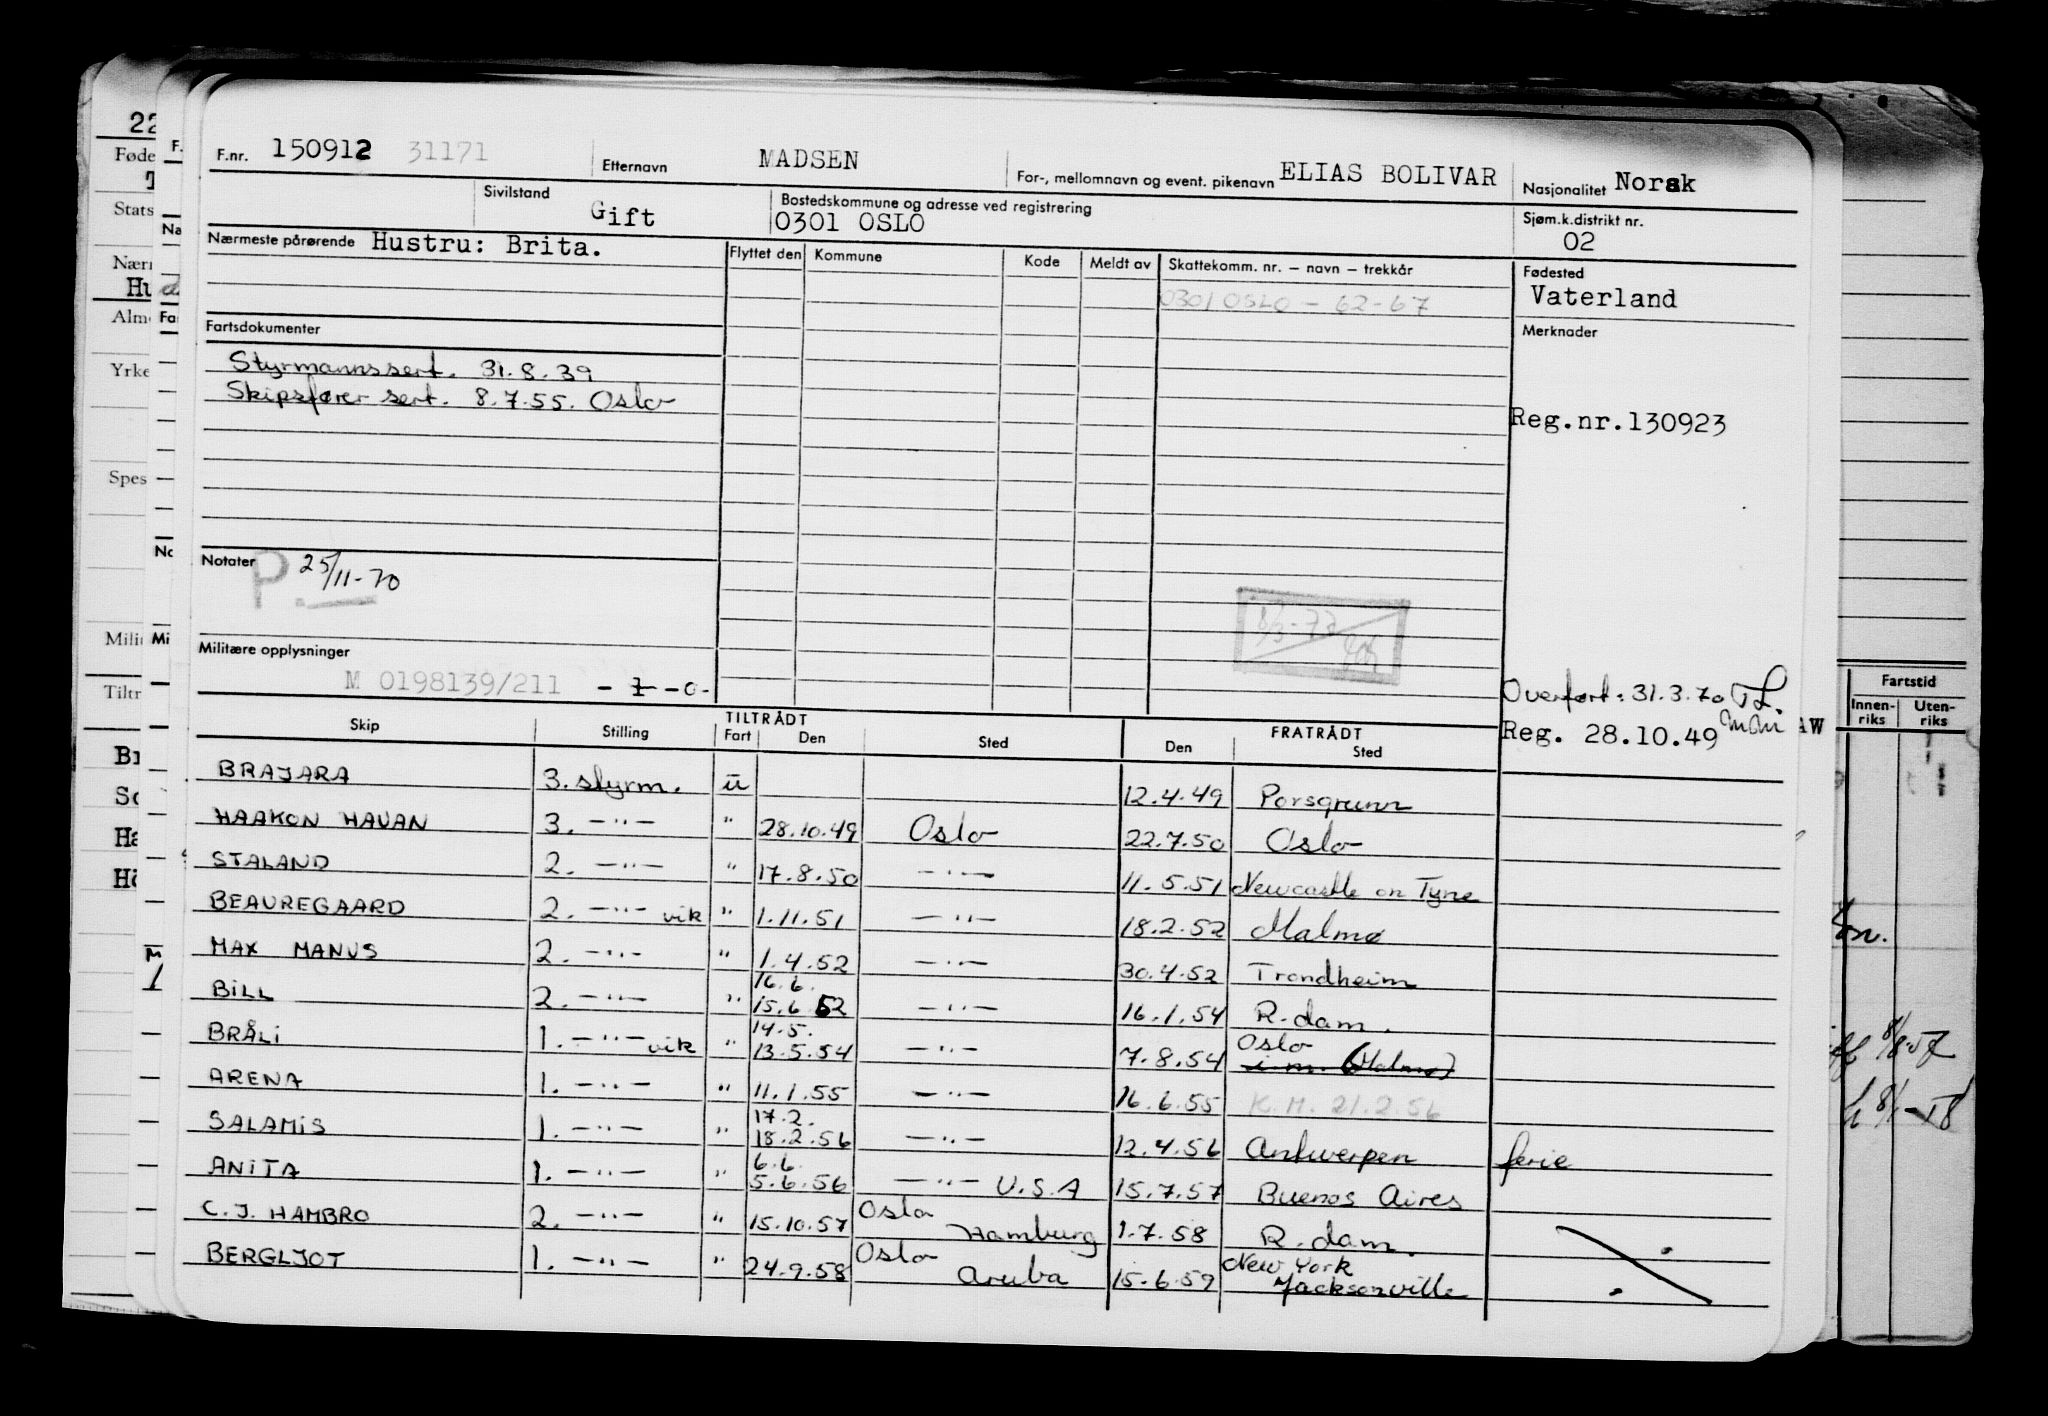 F.nr. 150912 31171 Etternavn MADSEN For-, mellomnavn og event. pikenavn ELIAS BOLIVAR Nasjonalitet Norsk
Sivilstand Gift Bostedskommune og adresse ved registrering 0301 OSLO Sjøm.k.distrikt nr. 02
Nærmeste pårørende Hustru: Brita. Flyttet den Kommune Kode Meldt av Skattekomm. nr. – navn – trekkår Fødested
0301 OSLO – 62-67 Vaterland
Fartsdokumenter Merknader
Styrmannssert. 31.8.39
Skipsfører sert. 8.7.55. Oslo
Reg.nr.130923
Notater P. 25/11-70
Militære opplysninger
M 0198139/211 - 1 -0- Overført: 31.3.70
Reg. 28.10.49 AW
Skip Stilling TILTRÅDT FRATRÅDT
Fart Den Sted Den Sted
BRAJARA 3. styrm. u 12.4.49 Porsgrunn
HAAKON HAUAN 3. –"– " 28.10.49 Oslo 22.7.50 Oslo
STALAND 2. –"– " 17.8.50 –"– 11.5.51 Newcastle on Tyne
BEAUREGAARD 2. –"– vik " 1.11.51 –"– 18.2.52 Malmø
MAX MANUS 2. –"– " 1.4.52 –"– 30.4.52 Trondheim
16.6.
BILL 2. –"– " 15.6.52 –"– 16.1.54 R.dam.
14.5. Oslo
BRÅLI 1. –"– vik " 13.5.54 –"– 7.8.54 i.m. (Malmø)
ARENA 1. –"– " 11.1.55 –"– 16.6.55 K.H. 21.2.56
17.2.
SALAMIS 1. –"– " 18.2.56 –"– 12.4.56 Antwerpen ferie
6.6.
ANITA 1. –"– " 5.6.56 –"– U.S.A 15.7.57 Buenos Aires
C.J. HAMBRO 2. –"– " 15.10.57 Oslo Hamburg 1.7.58 R.dam.
BERGLJOT 1. –"– " 24.9.58 Oslo Aruba 15.6.59 New York Jacksonville
Fartstid
Innen-riks Uten-riks